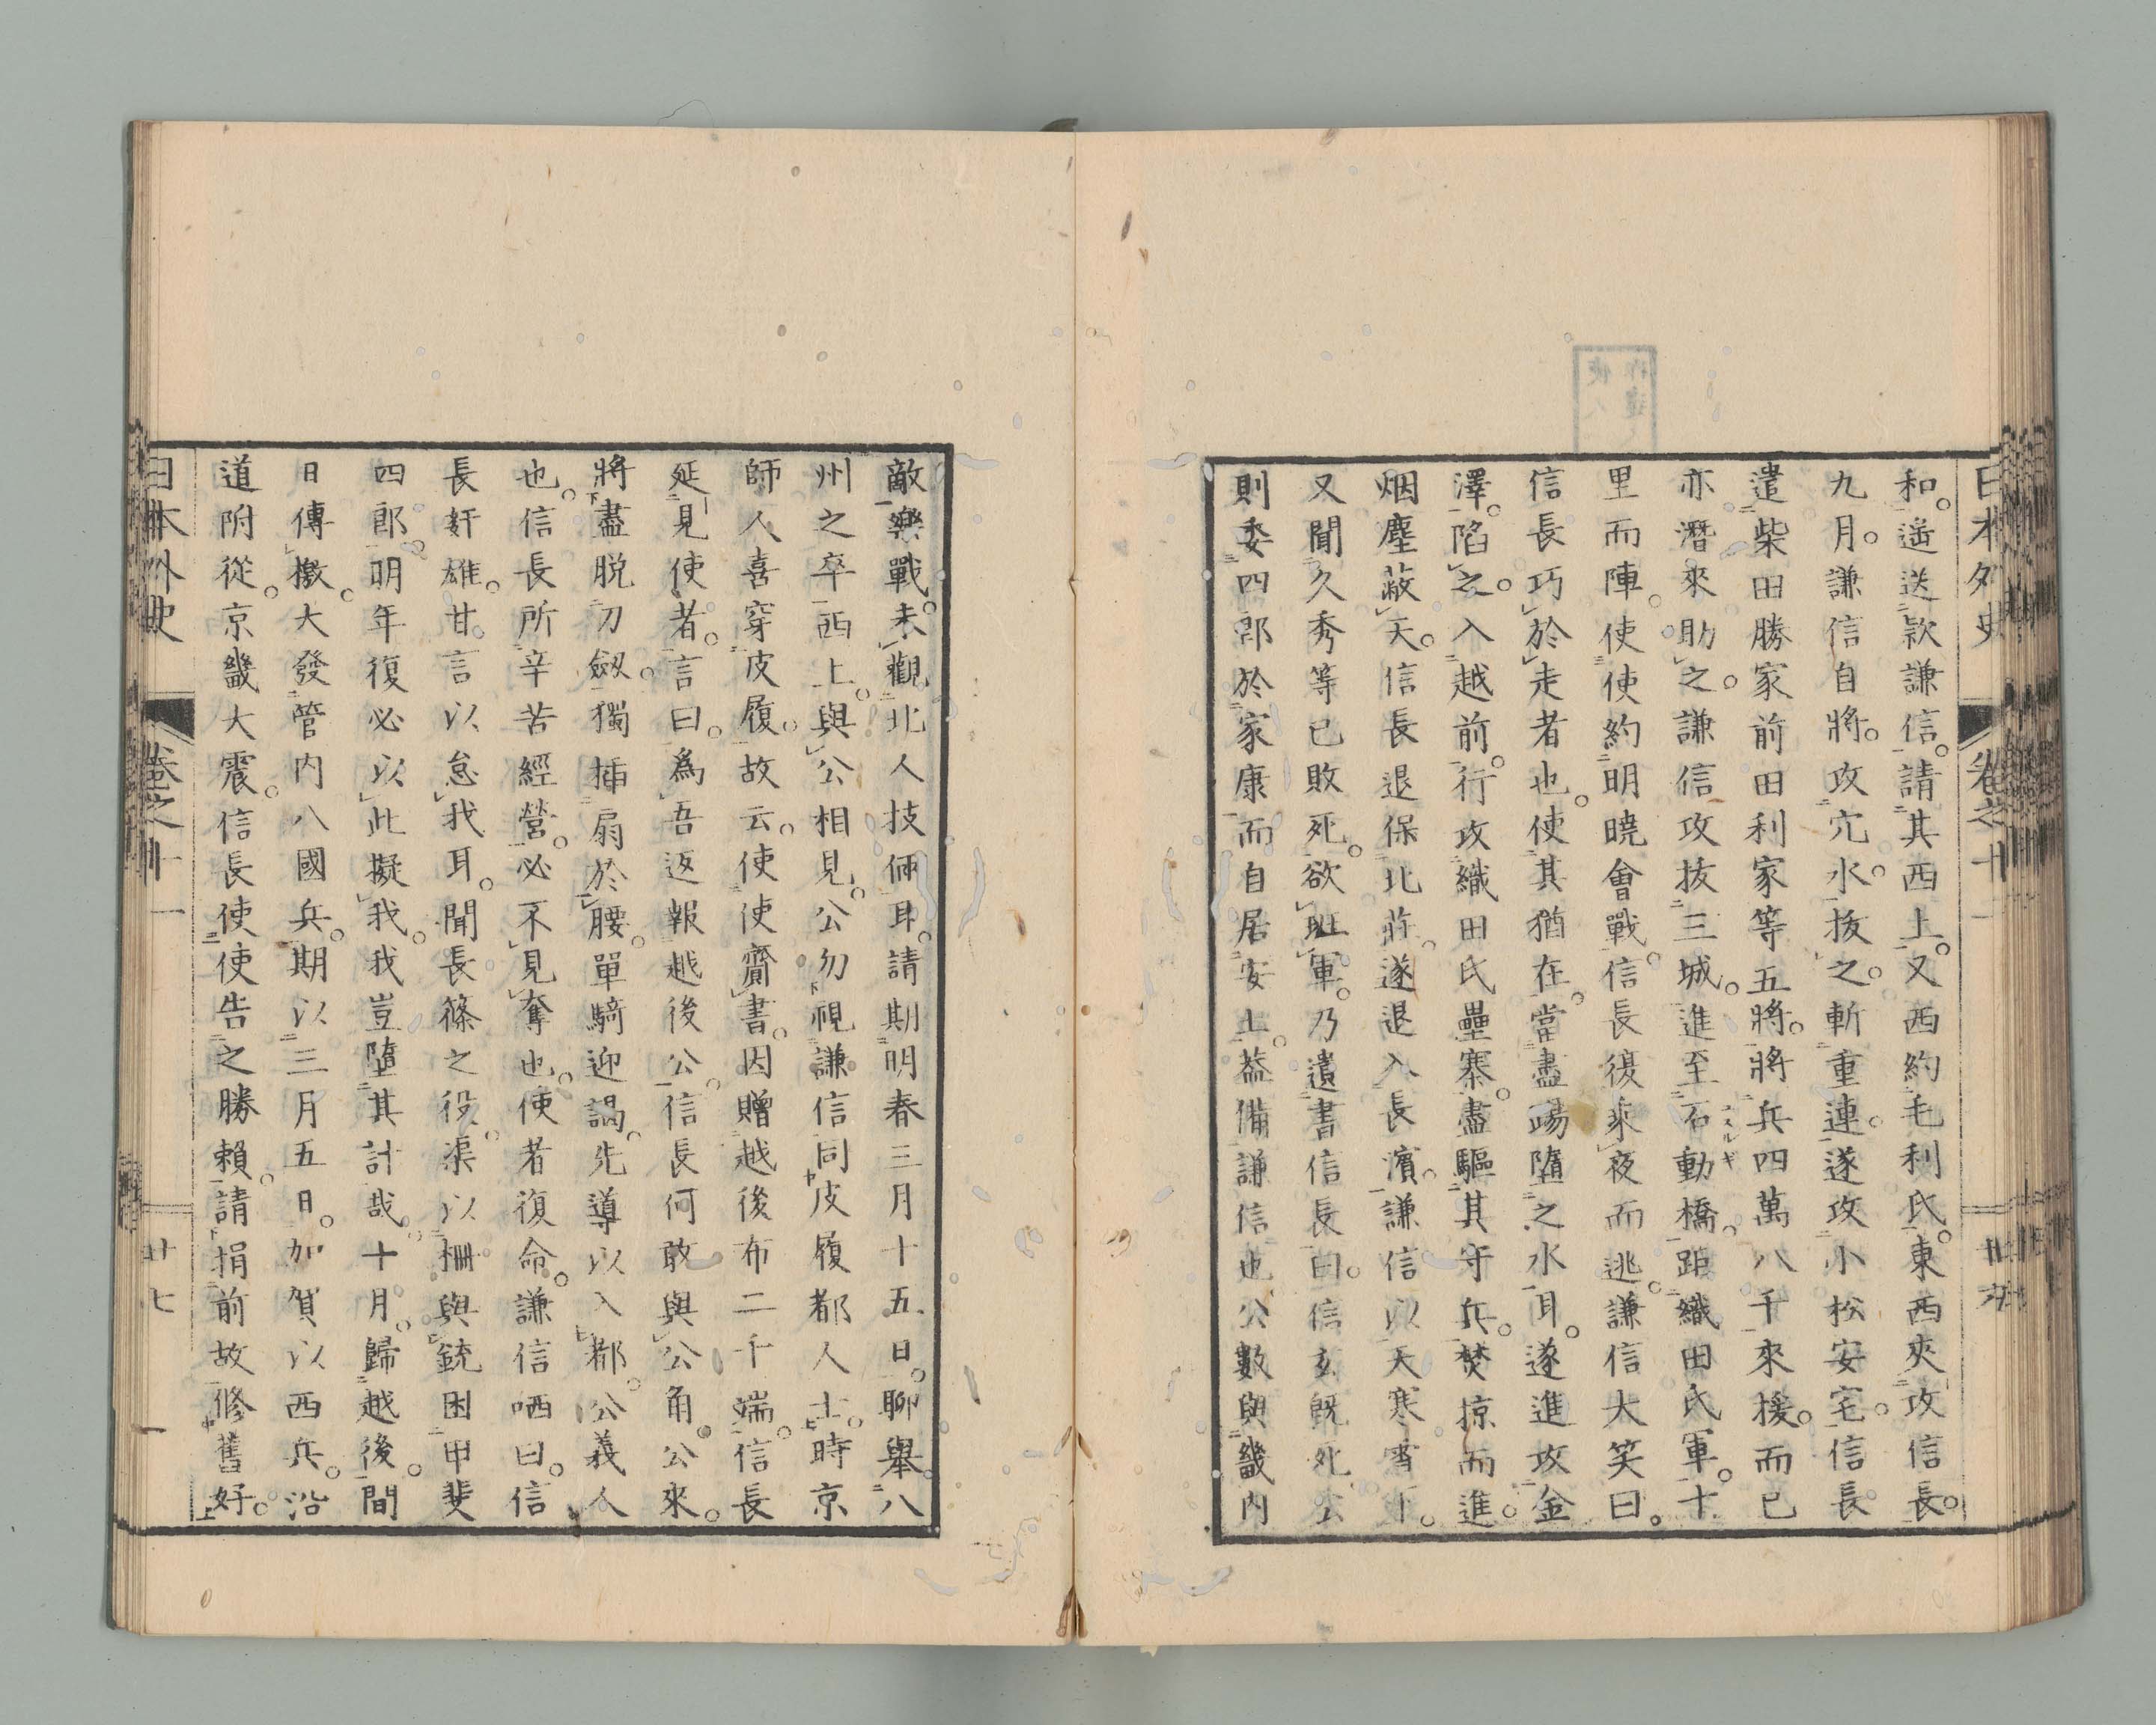 和。遙送款謙信。請其西上。又西約毛利氏。東西夾攻信長。
九月。謙信自將。攻穴水。拔之。斬重連。遂攻小松安宅。信長
遣柴田勝家前田利家等五將。將兵四萬八千來援。而已
亦潛來助之。謙信攻拔三城。進至石動橋。距織田氏軍。十
里而陣。使使約明曉會戰。信長復乘夜而逃。謙信大笑曰。
信長巧於走者也。使其猶在。當盡蹋墮之水耳。遂進攻金
澤。陷之。入越前。行攻織田氏壘寨。盡驅其守兵。焚掠而進。
烟塵蔽天。信長退保北莊。遂退入長濱。謙信以天寒雪下。
又聞久秀等已敗死。欲班軍。乃遺書信長曰。信玄既死。公
則委四郎於家康。而自居安土。蓋備謙信也。公數與畿內
日本外史 卷之十一
敵樂戰。未觀北人技倆耳。請期明春三月十五日。聊舉八
州之卒。西上。與公相見。公勿視謙信同皮履都人士。時京
師人喜穿皮履。故云。使使齎書。因贈越後布二千端。信長
延見使者。言曰。爲吾返報越後公。信長何敢與公角。公來。
將盡脱刀劔。獨揷扇於腰。單騎迎謁。先導以入都。公義人
也。信長所辛苦經營。必不見奪也。使者復命。謙信哂曰。信
長奸雄。甘言以怠我耳。聞長篠之役。渠以柵與銃困甲斐
四郎。明年復必以此擬我。我豈墮其計哉。十月。歸越後。間
日傳檄。大發管內八國兵。期以三月五日。加賀以西兵。沿
道附從。京畿大震。信長使使告之勝賴。請捐前故修舊好。
日本外史 卷之十一 廿七